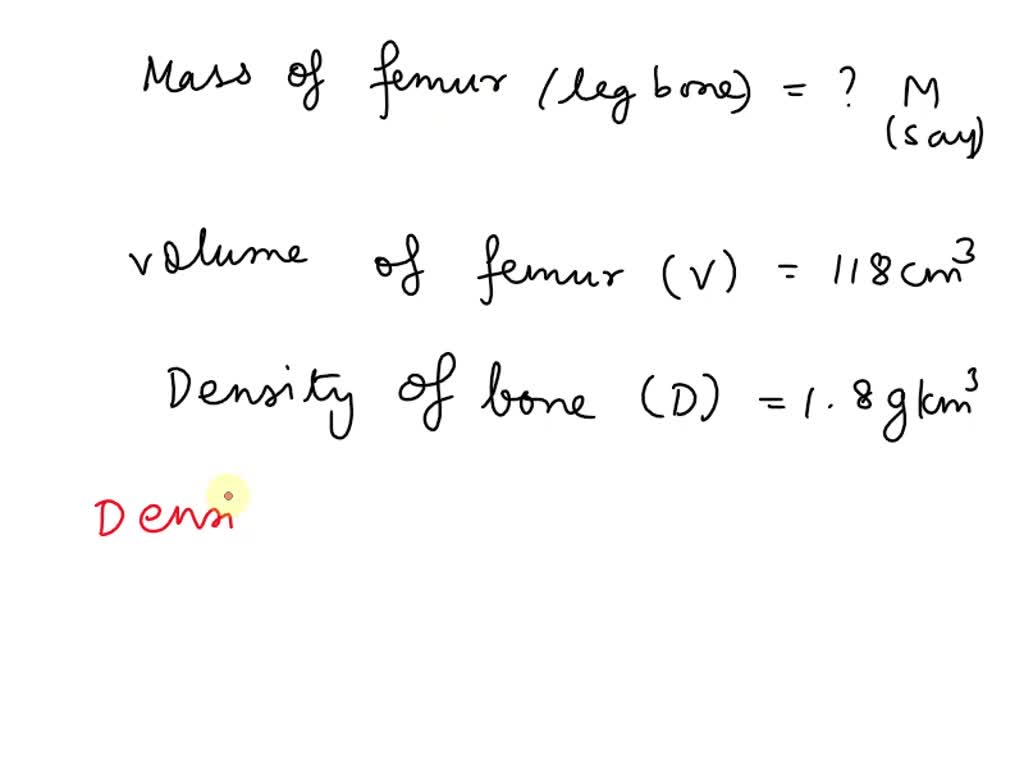 Mass of femur (leg bone) = ? M
(say)
volume of femur (V) = 118 cm³
Density of bone (D) = 1.8 g/cm³
Densi